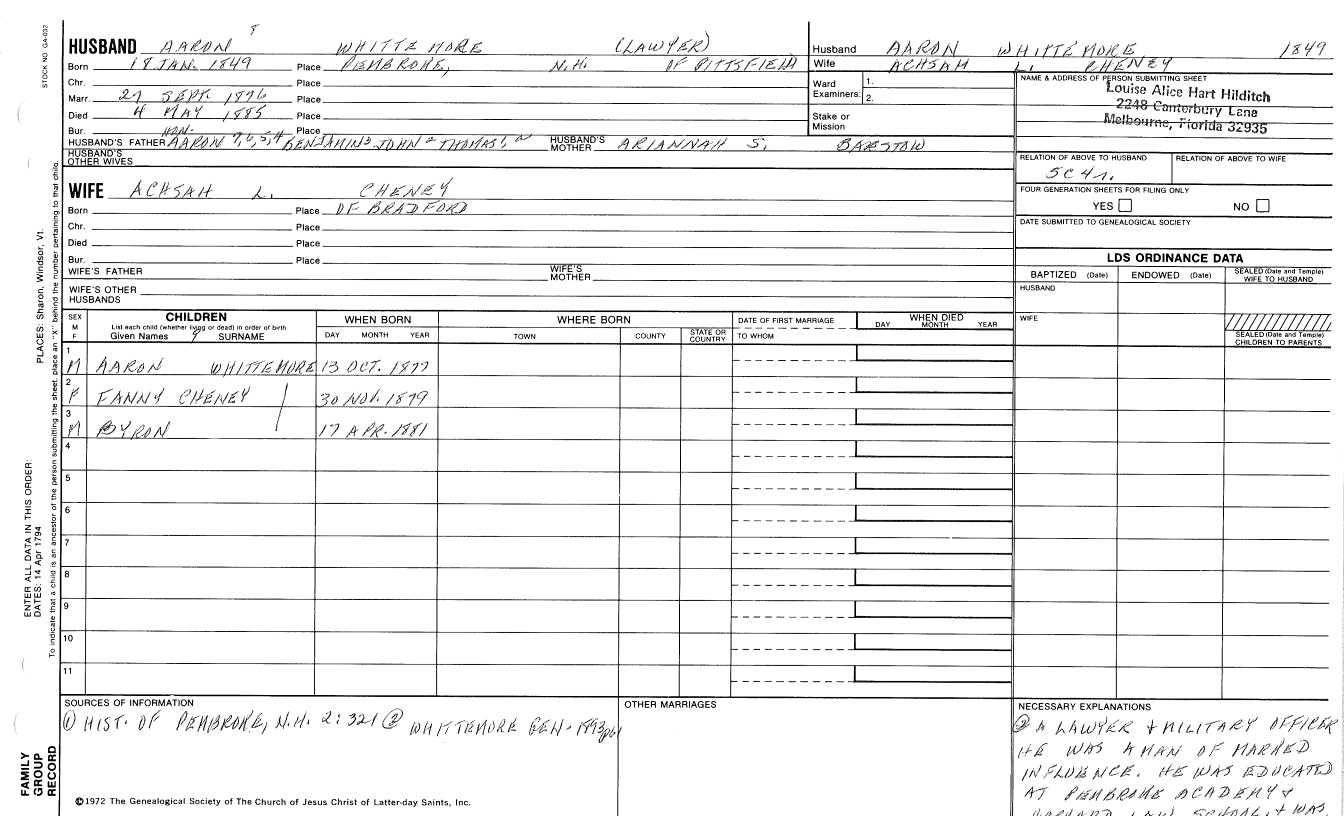 STOCK NO GA-032
HUSBAND AARON 8 WHITTEMORE (LAWYER)
Born 18 JAN. 1849 Place PEMBROKE, N.H. OF PITTSFIELD
Chr. Place
Marr 27 SEPT. 1876 Place
Died 4 MAY 1885 Place
Bur. Place
HUSBAND'S FATHER HON. AARON 7, 6, 5, 4 BENJAMIN 3 JOHN 2 THOMAS 1, HUSBAND'S MOTHER ARIANNAH S. BARSTOW
HUSBAND'S OTHER WIVES
WIFE ACHSAH L. CHENEY
Born Place OF BRADFORD
Chr. Place
Died Place
Bur. Place
WIFE'S FATHER WIFE'S MOTHER
WIFE'S OTHER HUSBANDS
Husband AARON WHITTEMORE 1849
Wife ACHSAH L. CHENEY
Ward Examiners: 1. 2.
Stake or Mission
NAME & ADDRESS OF PERSON SUBMITTING SHEET
Louise Alice Hart Hilditch
2248 Canterbury Lane
Melbourne, Florida 32935
RELATION OF ABOVE TO HUSBAND RELATION OF ABOVE TO WIFE
5C4r.
FOUR GENERATION SHEETS FOR FILING ONLY
YES NO
DATE SUBMITTED TO GENEALOGICAL SOCIETY
LDS ORDINANCE DATA
BAPTIZED (Date) ENDOWED (Date) SEALED (Date and Temple) WIFE TO HUSBAND
HUSBAND
WIFE
SEALED (Date and Temple) CHILDREN TO PARENTS
SEX M F CHILDREN WHEN BORN WHERE BORN DATE OF FIRST MARRIAGE WHEN DIED
List each child (whether living or dead) in order of birth
Given Names 9 SURNAME DAY MONTH YEAR TOWN COUNTY STATE OR COUNTRY TO WHOM DAY MONTH YEAR
1 M AARON WHITTEMORE 13 OCT. 1877
2 F FANNY CHENEY 30 NOV. 1879
3 M BYRON 17 APR. 1881
4
5
6
7
8
9
10
11
SOURCES OF INFORMATION
① HIST. OF PEMBROKE, N.H. 2:321 ② WHITTEMORE GEN. 1893
OTHER MARRIAGES
NECESSARY EXPLANATIONS
② A LAWYER & MILITARY OFFICER
HE WAS A MAN OF MARKED
INFLUENCE. HE WAS EDUCATED
AT PEMBROKE ACADEMY &
HARVARD LAW SCHOOL, & WAS
©1972 The Genealogical Society of The Church of Jesus Christ of Latter-day Saints, Inc.
PLACES: Sharon, Windsor, Vt.
To indicate that a child is an ancestor of the person submitting the sheet, place an "X" behind the number pertaining to that child.
ENTER ALL DATA IN THIS ORDER:
DATES: 14 Apr 1794
FAMILY GROUP RECORD